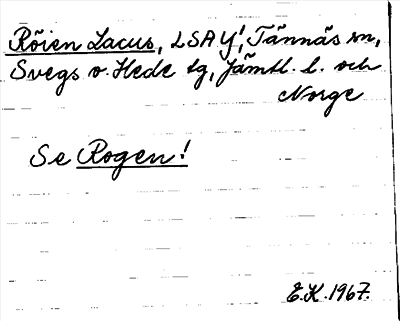 Röien Lacus, LSA Y!, Tännäs sn,
Svegs o. Hede tg, Jämtl. l. och
Norge
Se Rogen!
E.K. 1967.